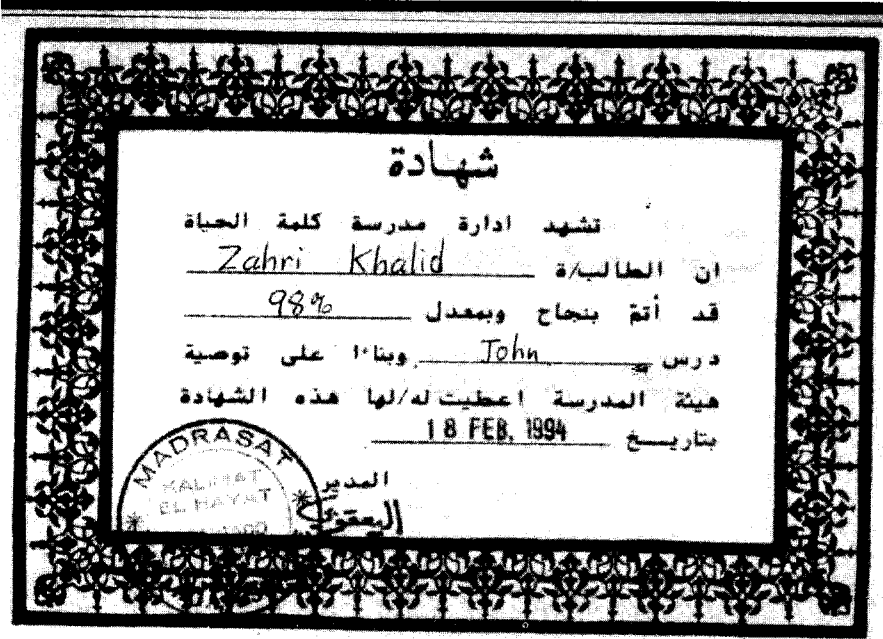 شهادة
تشهد ادارة مدرسة كلمة الحياة
ان الطالب/ة Zahri Khalid
قد أتمّ بنجاح وبمعدل 98%
درس John وبناءا على توصية
هيئة المدرسة اعطيت له/لها هذه الشهادة
بتاريــخ 18 FEB. 1994
المدير
MADRASAT
KALIMAT
EL HAYAT